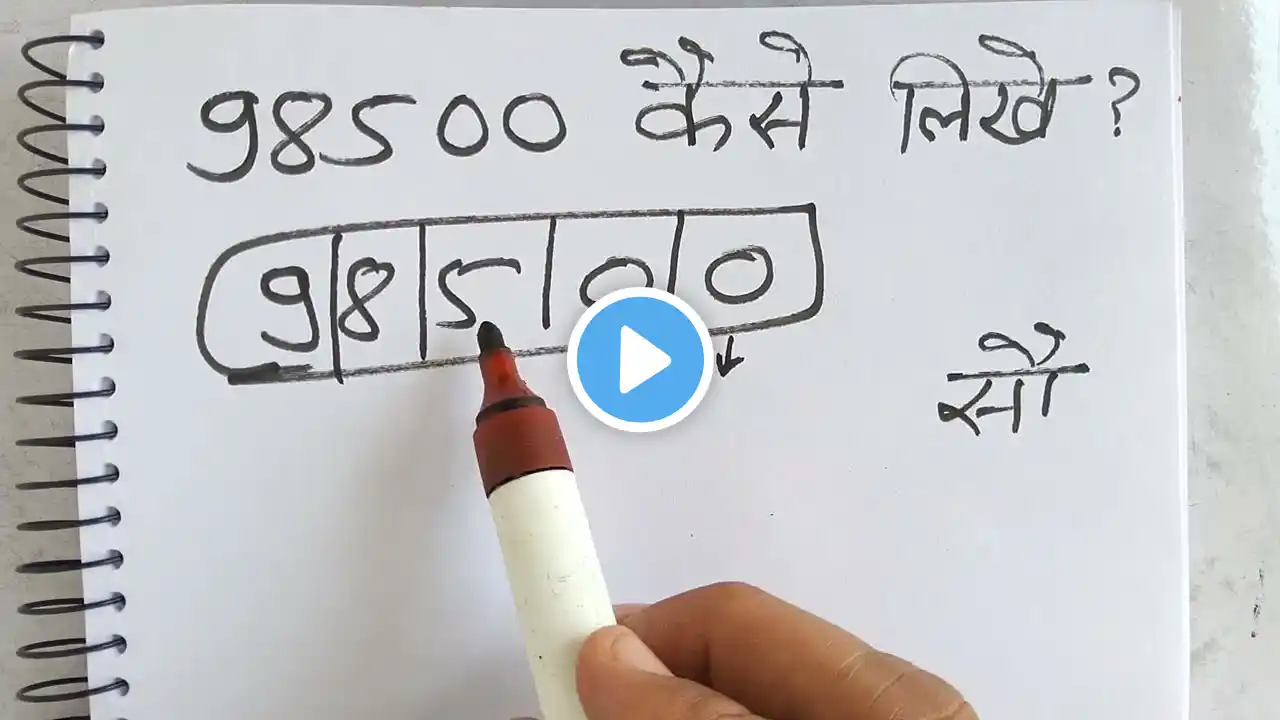 98500 कैसे लिखे ?
98500
सौ